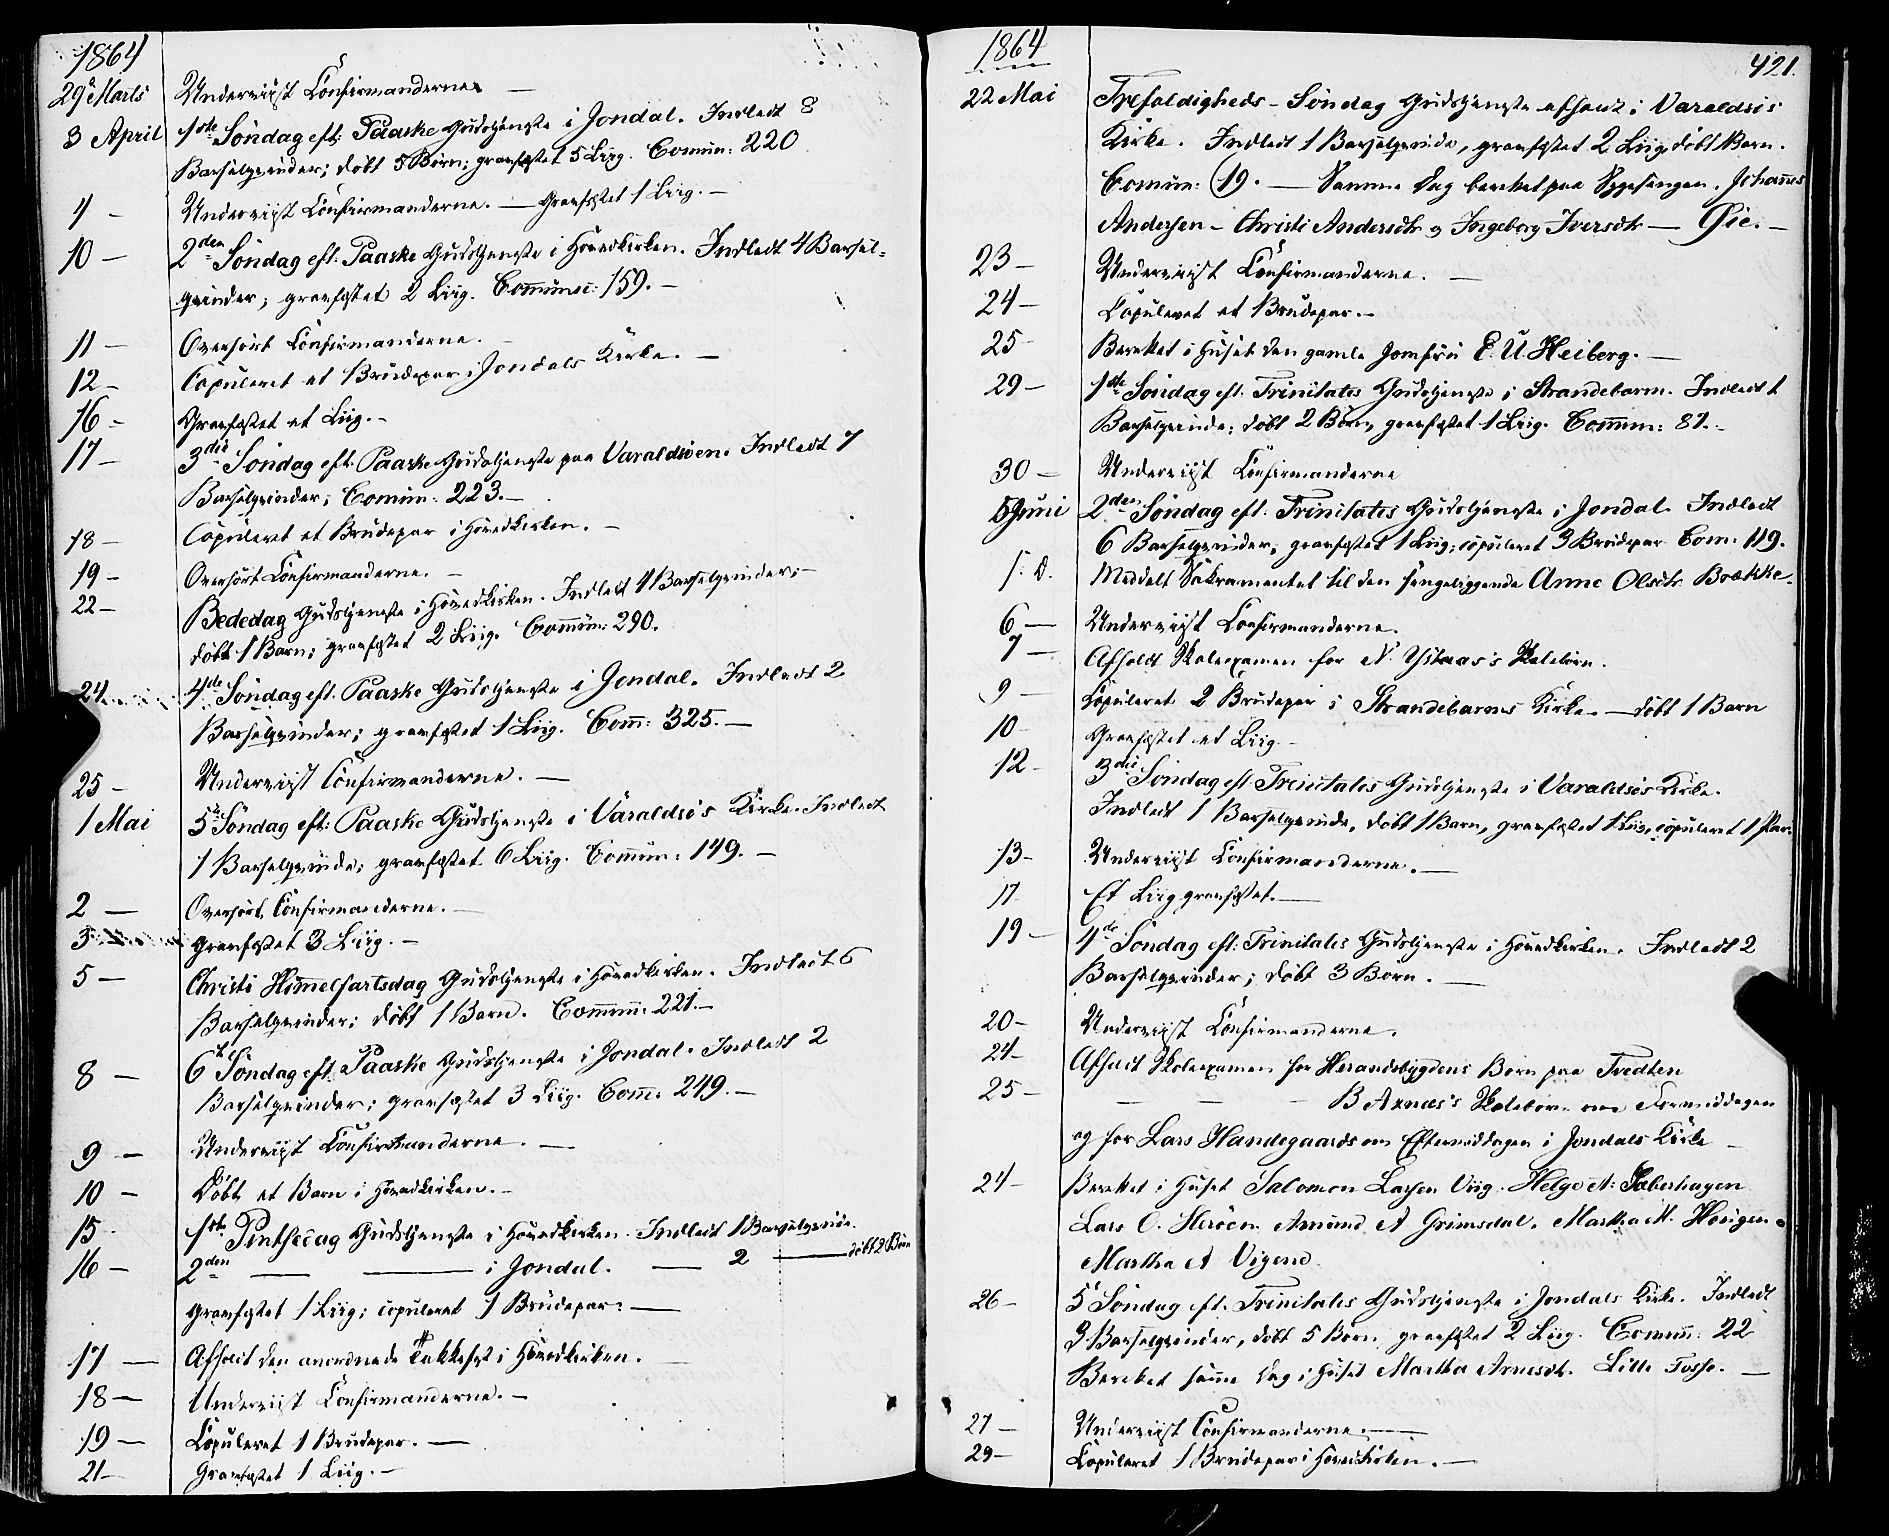 1864
29 Marts Underviist Confirmanderne. —
3 April 1ste Søndag eft: Paaske Gudstjeneste i Jondal. Indledt 8
Barselqvinder; døbt 5 Børn; gravfæstet 5 Liig. Comūn: 220
4 – Underviist Confirmanderne. — Gravfæstet 1 Liig. –
10 – 2den Søndag eft. Paaske Gudstjeneste i Hovedkirken. Indledt 4 Barsel-
qvinder; gravfæstet 2 Liig. Commūn: 159. –
11 – Overhørt Confirmanderne. –
12 – Copuleret et Brudepar i Jondals Kirke. –
16 – Gravfæstet et Liig. –
17 – 3die Søndag eft. Paaske Gudstjeneste paa Varaldsøen. Indledt 7
Barselqvinder; Comūn: 223. –
18 – Copuleret et Brudepar i Hovedkirken. –
19 – Overhørt Confirmanderne. –
22 – Bededag Gudstjeneste i Hovedkirken. Indledt 4 Barselqvinder; –
døbt 1 Barn; gravfæstet 2 Liig. Commūn: 290.
24 4de Søndag eft. Paaske Gudstjeneste i Jondal. Indledt 2
Barselqvinder; gravfæstet 1 Liig. Com̄: 325. –
25 – Underviist Confirmanderne. –
1 Mai 5te Søndag eft: Paaske Gudstjeneste i Varaldsø's Kirke. Indledt
1 Barselqvinde; gravfæstet 6 Liig. Commūn: 149. –
2 — Overhørt Confirmanderne. –
3 – Gravfæstet 3 Liig. –
5 – Christi Him̄elfartsdag Gudstjeneste i Hovedkirken. Indledt 6
Barselqvinder; døbt 1 Barn. Commūn: 221. –
8 – 6te Søndag eft Paaske Gudstjeneste i Jondal. Indledt 2
Barselqvinder; gravfæstet 3 Liig. Com̄: 249. –
9 – Underviist Confirmanderne. –
10 – Døbt et Barn i Hovedkirken. –
15 – 1ste Pintsedag Gudstjeneste i Hovedkirken. Indledt 1 Barselqvinde.
16 – 2den — — i Jondal. — 2 — døbt 2 Børn
Gravfæstet 1 Liig; copuleret 1 Brudepar. —
17 — Afholdt den anordnede Takkefest i Hovedkirken. –
18 — Underviist Confirmanderne. –
19 — Copuleret 1 Brudepar. —
21 — Gravfæstet 1 Liig. —
1864
421.
22 Mai Trefoldigheds-Søndag Gudstjeneste afholdt i Varaldsøs
Kirke. Indledt 1 Barselqvinde, gravfæstet 2 Liig, døbt 1 Barn.
Comūn: 19. — Samme Dag berettet paa Sygesengen, Johannes
Andersen – Christi Andersdtr og Ingeborg Iversdtr — Øie. –
23 – Underviist Confirmanderne. —
24 – Copuleret et Brudepar. –
25 Berettet i Huset den gamle Jomfru E. U. Heiberg. —
29 – 1ste Søndag eft. Trinitatis Gudstjeneste i Strandebarm. Indledt 1
Barselqvinde; døbt 2 Børn, gravfæstet 1 Liig. Com̄un: 81. –
30 — Underviist Confirmanderne
5 Juni 2den Søndag eft. Trinitatis Gudstjeneste i Jondal. Indledt
6 Barselqvinder, gravfæstet 1 Liig; copuleret 3 Brudepar Com: 119.
s. D. Meddelt Sakramentet til den sengeliggende Anne Olsdtr Brække.
6 — Underviist Confirmanderne.
7 — Afholdt Skoleexamen for N. Ystaas's Skolebørn.
9 – Copuleret 2 Brudepar i Strandebarms Kirke. — døbt 1 Barn
10 – Gravfæstet et Liig –
12 – 3die Søndag eft. Trinitatis Gudstjeneste i Varaldsøs Kirke.
Indledt 1 Barselqvinde, døbt 1 Barn, gravfæstet 1 Liig, copuleret 1 Par.
13 – Underviist Confirmanderne. —
17 Et Liig gravfæstet. —
19 – 4de Søndag eft: Trinitatis Gudstjeneste i Hovedkirken. Indledt 2
Barselqvinder; døbt 3 Børn. —
20 – Underviist Confirmanderne.
24 – Afholdt Skoleexamen for Herandsbygdens Børn paa Tredten
25 – — — — B Axnæs's Skolebørn om Formiddagen
og for Lars Handegaards om Eftermiddagen i Jondals Kirke –
24 – Berettet i Huset Salomon Larsen Viig. Helge A: Saberhagen
Lars O. Herøen Amund A Grimsdal. Martha M. Hougen.
Martha A Vigend
26 – 5 Søndag eft. Trinitatis Gudstjeneste i Jondals Kirke. Indledt
3 Barselqvinder, døbt 5 Børn gravfæstet 2 Liig. Comūn: 22
Berettet sam̄e Dag i Huset Martha Arnesdtr. Lille Tosse. —
27 — Underviist Confirmanderne. —
29 – Copuleret 1 Brudepar i Hovedkirken. —